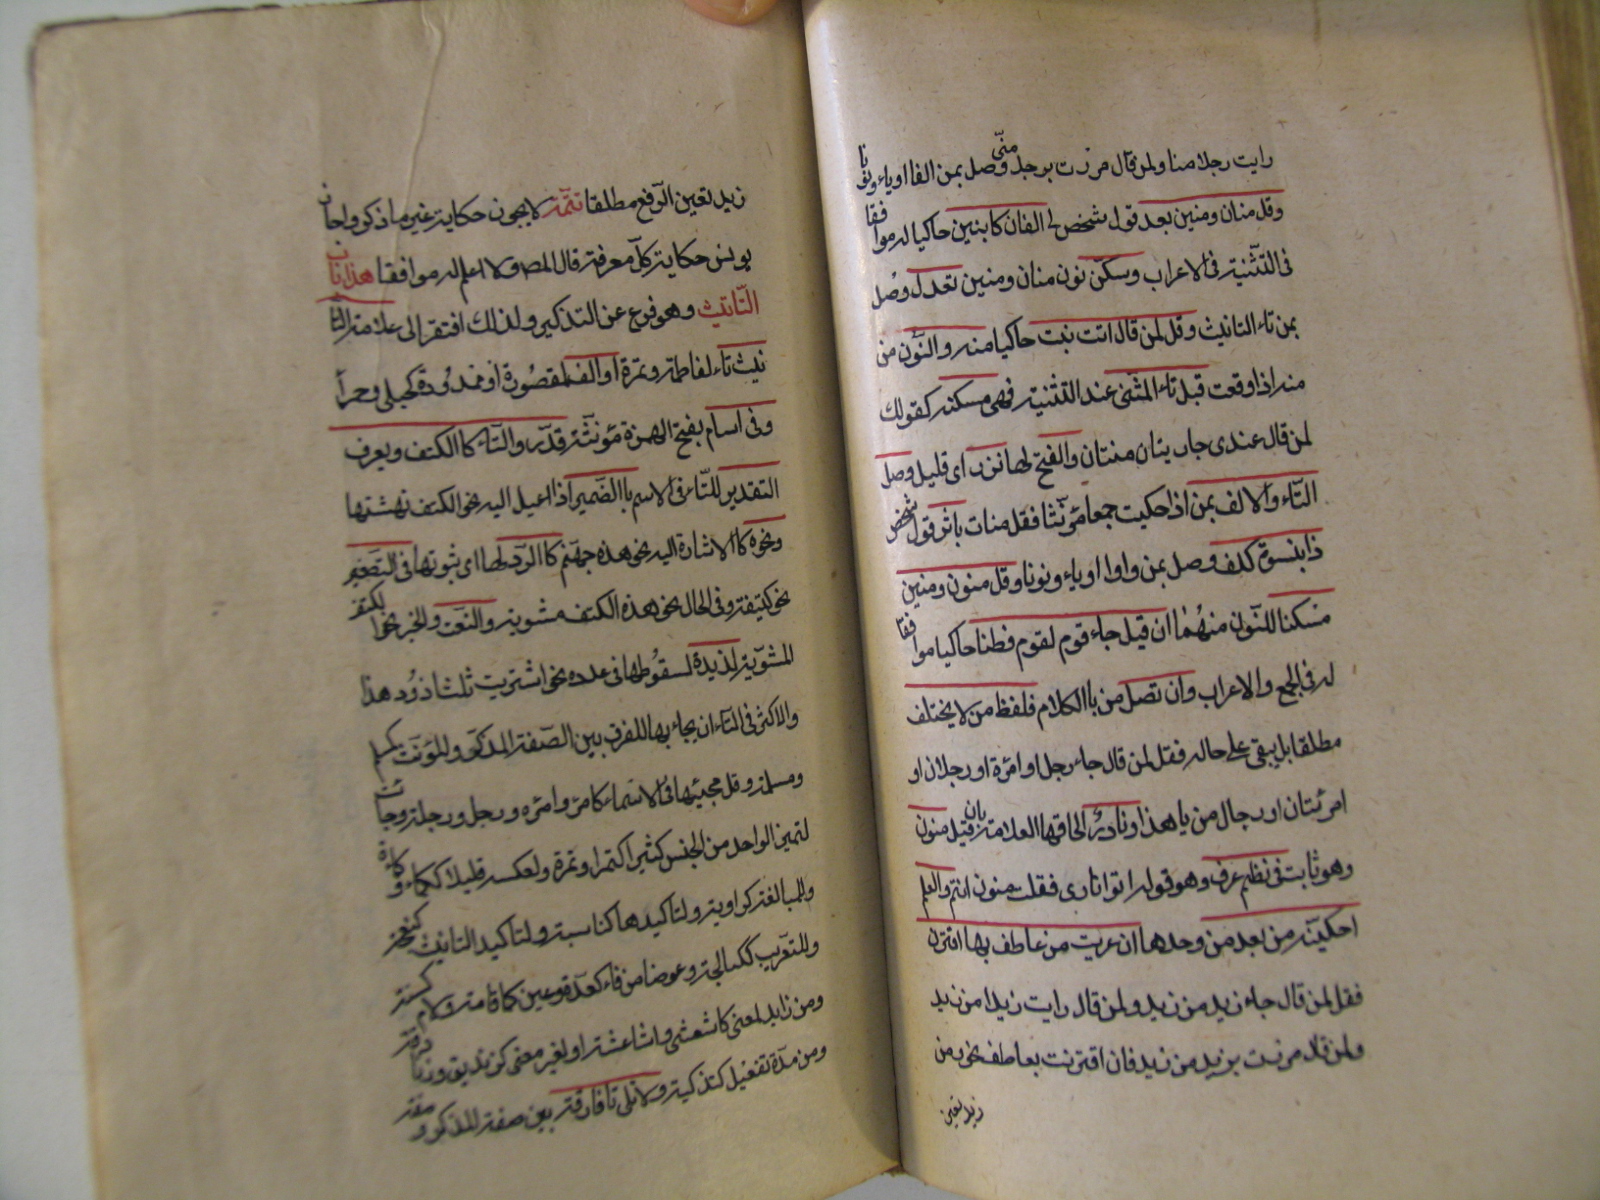 رايت رجلا منا ولمن قال مررت برجل منى وصل بمن الفا او ياء ونونا
وقل منان ومنين بعد قول شخص لى الفان كابنين حاكيا له موافقا
فى التثنية فى الاعراب وسكن نون منان ومنين تعدل وصل
بمن تاء التانيث وقل لمن قال اتت بنت حاكيا منه والنون من
منه اذا وقعت قبل تاء المثنى عند التثنية فهى مسكنه كقولك
لمن قال عندى جاريتان منتان والفتح لها نزر اى قليل وصل
التاء والالف بمن اذا حكيت جمعا مؤنثا فقل منات باثر قول شخص
ذا بنسوة كلف وصل بمن واوا او ياء ونونا وقل منون ومنين
مسكنا للنون منهما ان قيل جاء قوم لقوم فطنا حاكيا موافقا
له فى الجمع والاعراب وان تصل من بالكلام فلفظ من لا يختلف
مطلقا بل يبقى على حاله فقل لمن قال جاء رجل او امرءة او رجلان او
امرئتان او رجال من يا هذا ونادر الحاقها العلامة بان قيل منون
وهو ثابت فى نظم عرف وهو قوله اتوا نارى فقلت منون انتم والعلم
احكينه من بعد من وحدها ان عريت من عاطف بها اقترن
فقل لمن قال جاء زيد من زيد ولمن قال رايت زيدا من زيد
ولمن قال مررت بزيد من زيد فان اقترنت بعاطف نحو ومن
زيد تعين
زيد تعين الرفع مطلقا تتمة لا يجوز حكاية غير ما ذكر واجاز
يونس حكاية كل معرفة قال المص ولا اعلم له موافقا هذا باب
التانيث وهو فرع عن التذكير ولذلك افتقر الى علامة التا
نيث تاء لفاطمة وتمرة او الف مقصورة او ممدودة كحبلى وحرا
وفى اسام بفتح الهمزة مؤنثة قدر والتاء كالكتف ويعرف
التقدير للتاء فى الاسم بالضمير اذا اعيل اليه نحو الكتف نهشتها
ونحوه كالاشارة اليه نحو هذه جهنم كالرد لها اى ثبوتها فى التصغير
نحو كتيفة وفى الحال نحو هذه الكتف مشوية والنعت والخبر نحو الكتف
المشوية لذيذة لسقوطها فى عدده نحو اشتريت ثلث اذود هذا
والاكثر فى التاء ان يجاء بها للفرق بين الصفة المذكر والمؤنث كمسلم
ومسلمة وقل مجيئها فى الاسماء كامرء وامرءة ورجل ورجلة وجاءت
لتميز الواحد من الجنس كثيرا كتمر وتمرة ولعكسه قليلا كماء وكماءة
وللمبالغة كراوية ولتاكيدها كنسابة ولتاكيد التانيث كنعجة
وللتعريب ككيالجة وعوضا من فاء كعدة وعين كاقامة ولام كسنة
ومن زايد لمعنى كاشعثى واشاعثة او لغير معنى كزنديق وزنادقة
ومن مدة تفعيل كتذكية ولا تلى تا فارقة بين صفة المذكر و